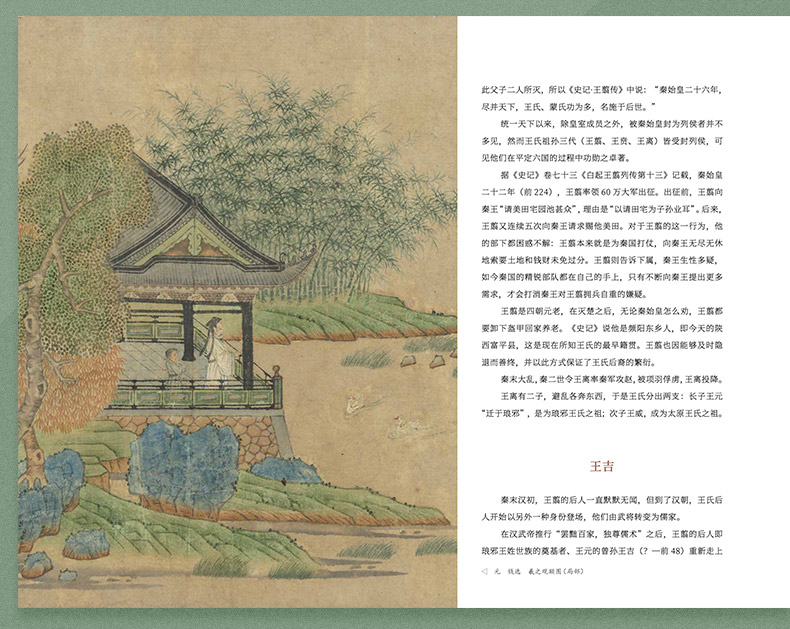 此父子二人所灭，所以《史记·王翦传》中说：“秦始皇二十六年，
尽并天下，王氏、蒙氏功为多，名施于后世。”
统一天下以来，除皇室成员之外，被秦始皇封为列侯者并不
多见，然而王氏祖孙三代（王翦、王贲、王离）皆受封列侯，可
见他们在平定六国的过程中功勋之卓著。
据《史记》卷七十三《白起王翦列传第十三》记载，秦始皇
二十二年（前 224），王翦率领 60 万大军出征。出征前，王翦向
秦王“请美田宅园池甚众”，理由是“以请田宅为子孙业耳”。后来，
王翦又连续五次向秦王请求赐他美田。对于王翦的这一行为，他
的部下都困惑不解：王翦本来就是为秦国打仗，向秦王无尽无休
地索要土地和钱财未免过分。王翦则告诉下属，秦王生性多疑，
如今秦国的精锐部队都在自己的手上，只有不断向秦王提出更多
需求，才会打消秦王对王翦拥兵自重的嫌疑。
王翦是四朝元老，在灭楚之后，无论秦始皇怎么劝，王翦都
要卸下盔甲回家养老。《史记》说他是频阳东乡人，即今天的陕
西富平县，这是现在所知王氏的最早籍贯。王翦也因能够及时隐
退而善终，并以此方式保证了王氏后裔的繁衍。
秦末大乱，秦二世令王离率秦军攻赵，被项羽俘虏，王离投降。
王离有二子，避乱各奔东西，于是王氏分出两支：长子王元
“迁于琅邪”，是为琅邪王氏之祖；次子王威，成为太原王氏之祖。
王吉
秦末汉初，王翦的后人一直默默无闻，但到了汉朝，王氏后
人开始以另外一种身份登场，他们由武将转变为儒家。
在汉武帝推行“罢黜百家，独尊儒术”之后，王翦的后人即
琅邪王姓世族的奠基者、王元的曾孙王吉（？—前 48）重新走上
◁ 元 钱选 羲之观鹅图（局部）